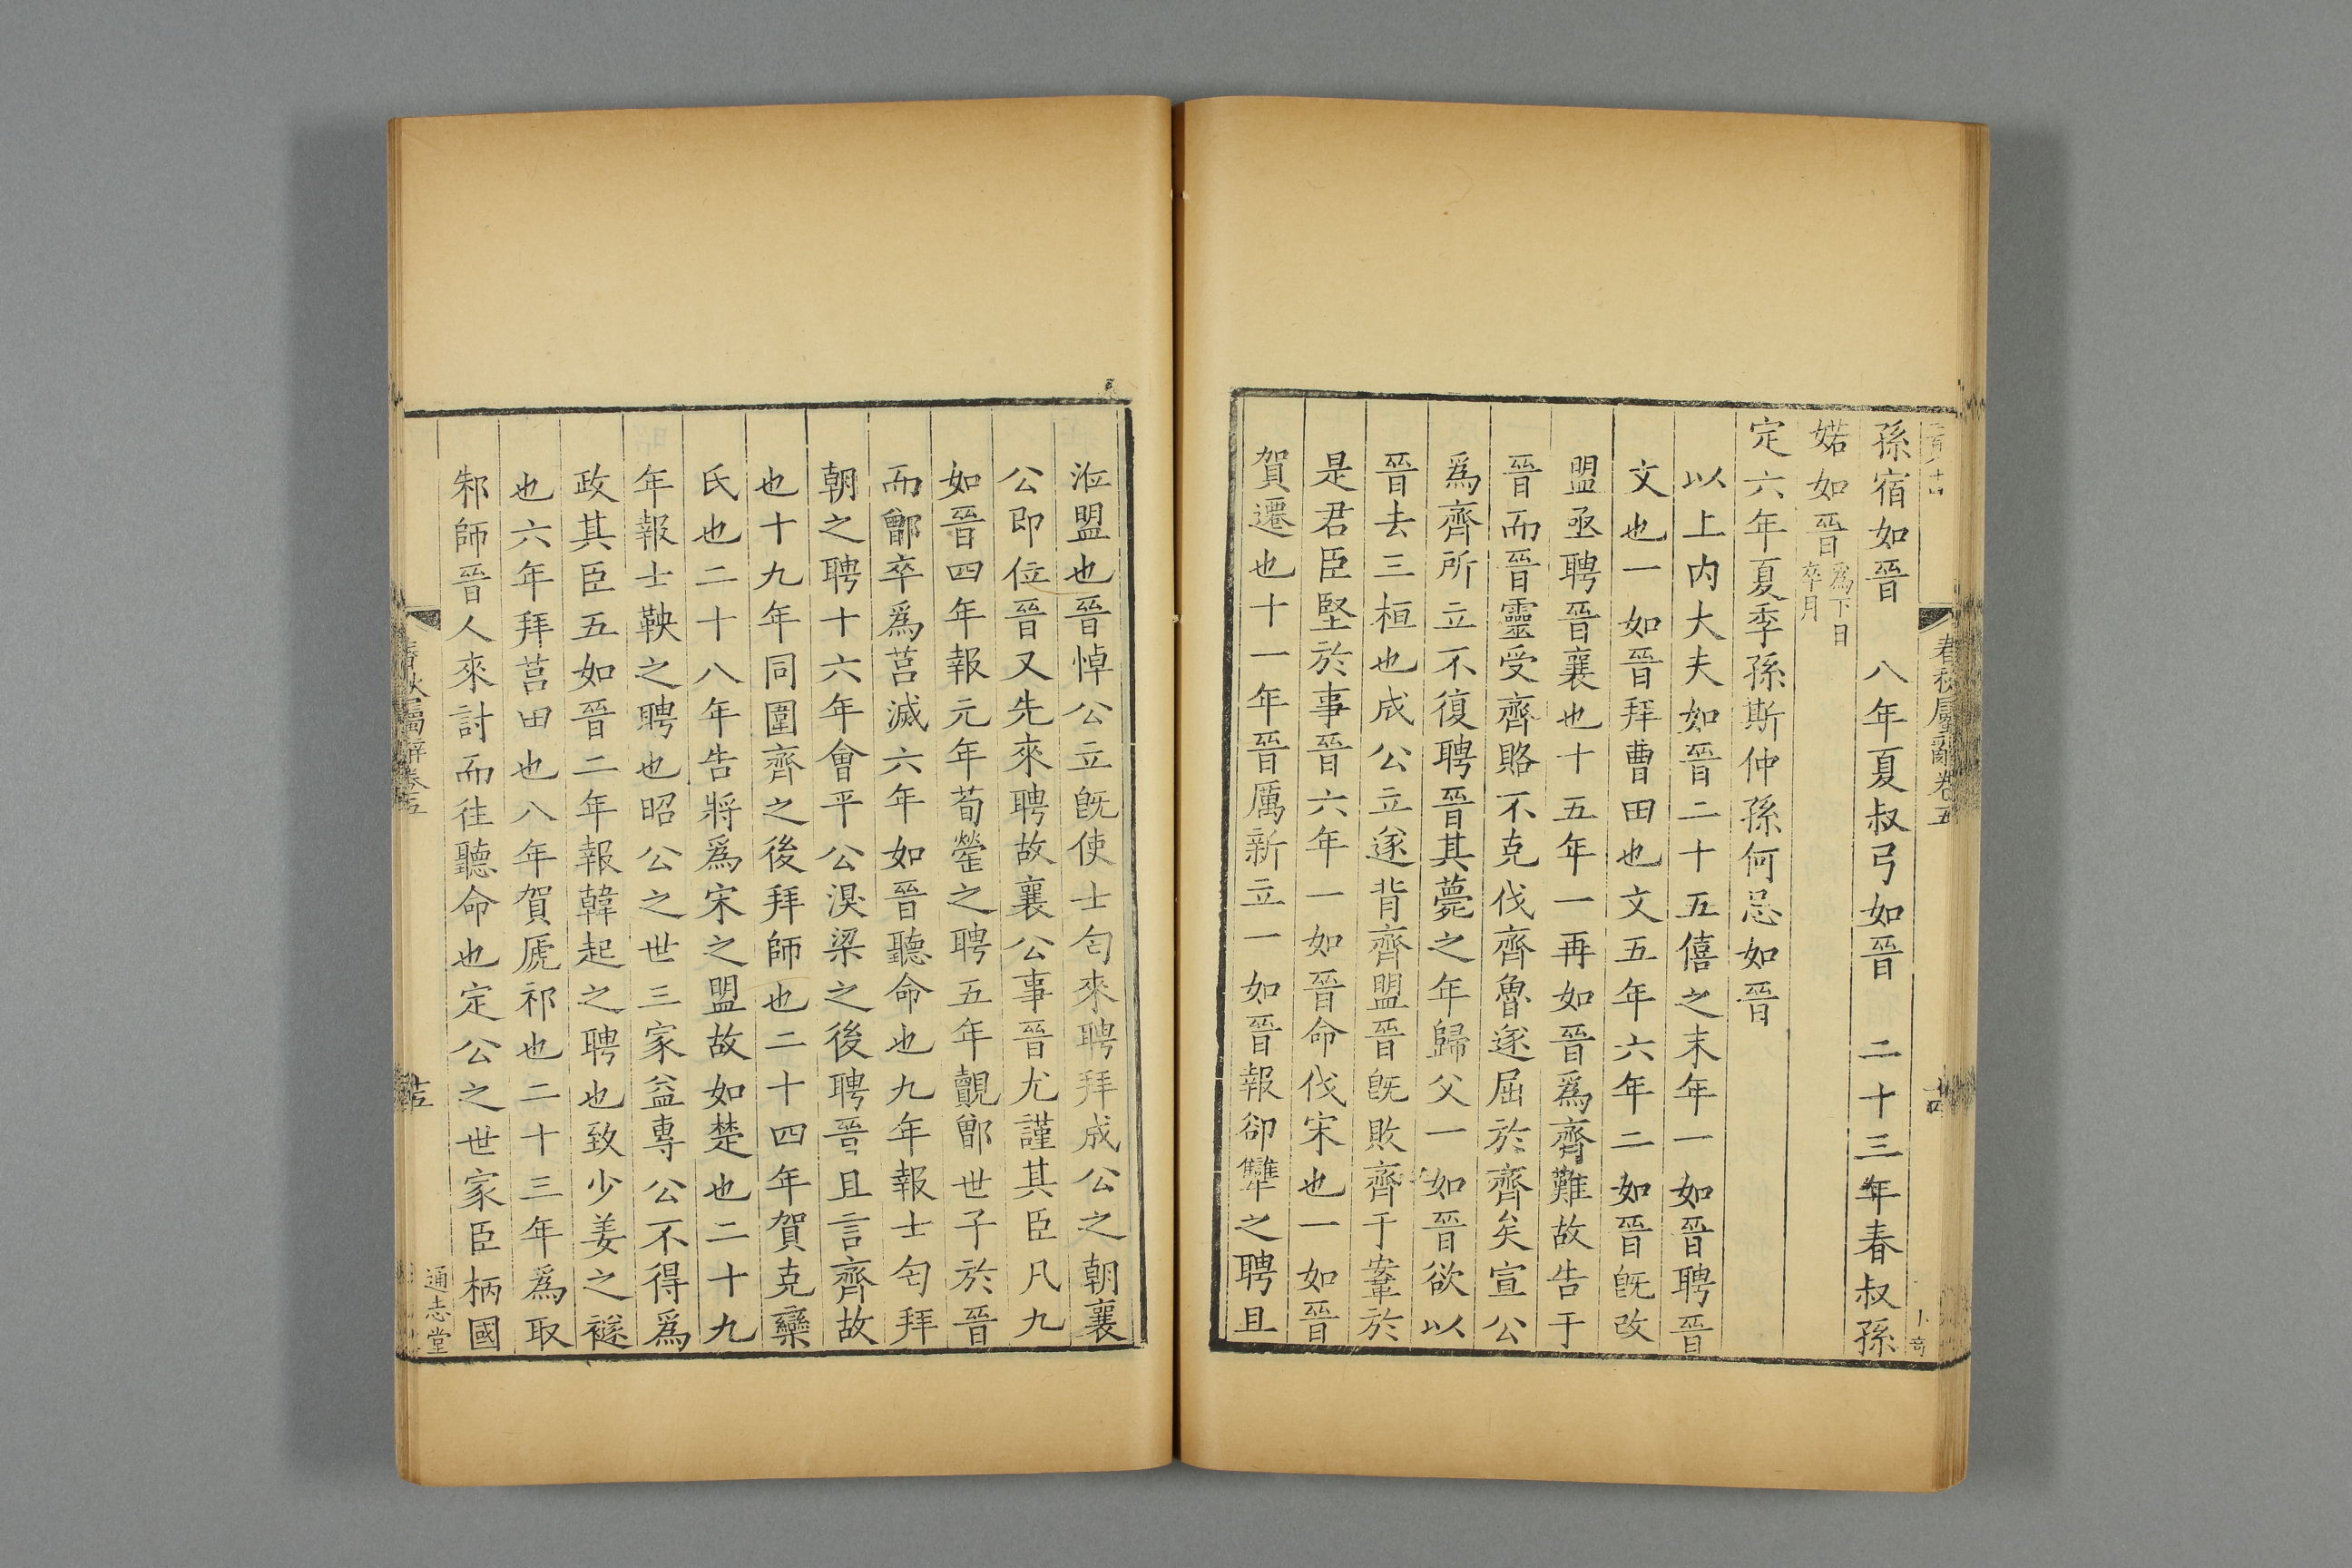 孫宿如晉　八年夏叔弓如晉　二十三年春叔孫
婼如晉爲下日卒月
定六年夏季孫斯仲孫何忌如晉
以上内大夫如晉二十五僖之末年一如晉聘晉
文也一如晉拜曹田也文五年六年二如晉旣改
盟亟聘晉襄也十五年一再如晉爲齊難故告于
晉而晉靈受齊賂不克伐齊魯遂屈於齊矣宣公
爲齊所立不復聘晉其薨之年歸父一如晉欲以
晉去三桓也成公立遂背齊盟晉旣敗齊于鞌於
是君臣堅於事晉六年一如晉命伐宋也一如晉
賀遷也十一年晉厲新立一如晉報郤犨之聘且
涖盟也晉悼公立旣使士匄來聘拜成公之朝襄
公即位晉又先來聘故襄公事晉尤謹其臣凡九
如晉四年報元年荀罃之聘五年覿鄫世子於晉
而鄫卒爲莒滅六年如晉聽命也九年報士匄拜
朝之聘十六年會平公湨梁之後聘晉且言齊故
也十九年同圍齊之後拜師也二十四年賀克欒
氏也二十八年告將爲宋之盟故如楚也二十九
年報士鞅之聘也昭公之世三家益專公不得爲
政其臣五如晉二年報韓起之聘也致少姜之襚
也六年拜莒田也八年賀虒祁也二十三年爲取
邾師晉人來討而往聽命也定公之世家臣柄國
春秋屬辭卷五
十四
春秋屬辭卷五
通志堂